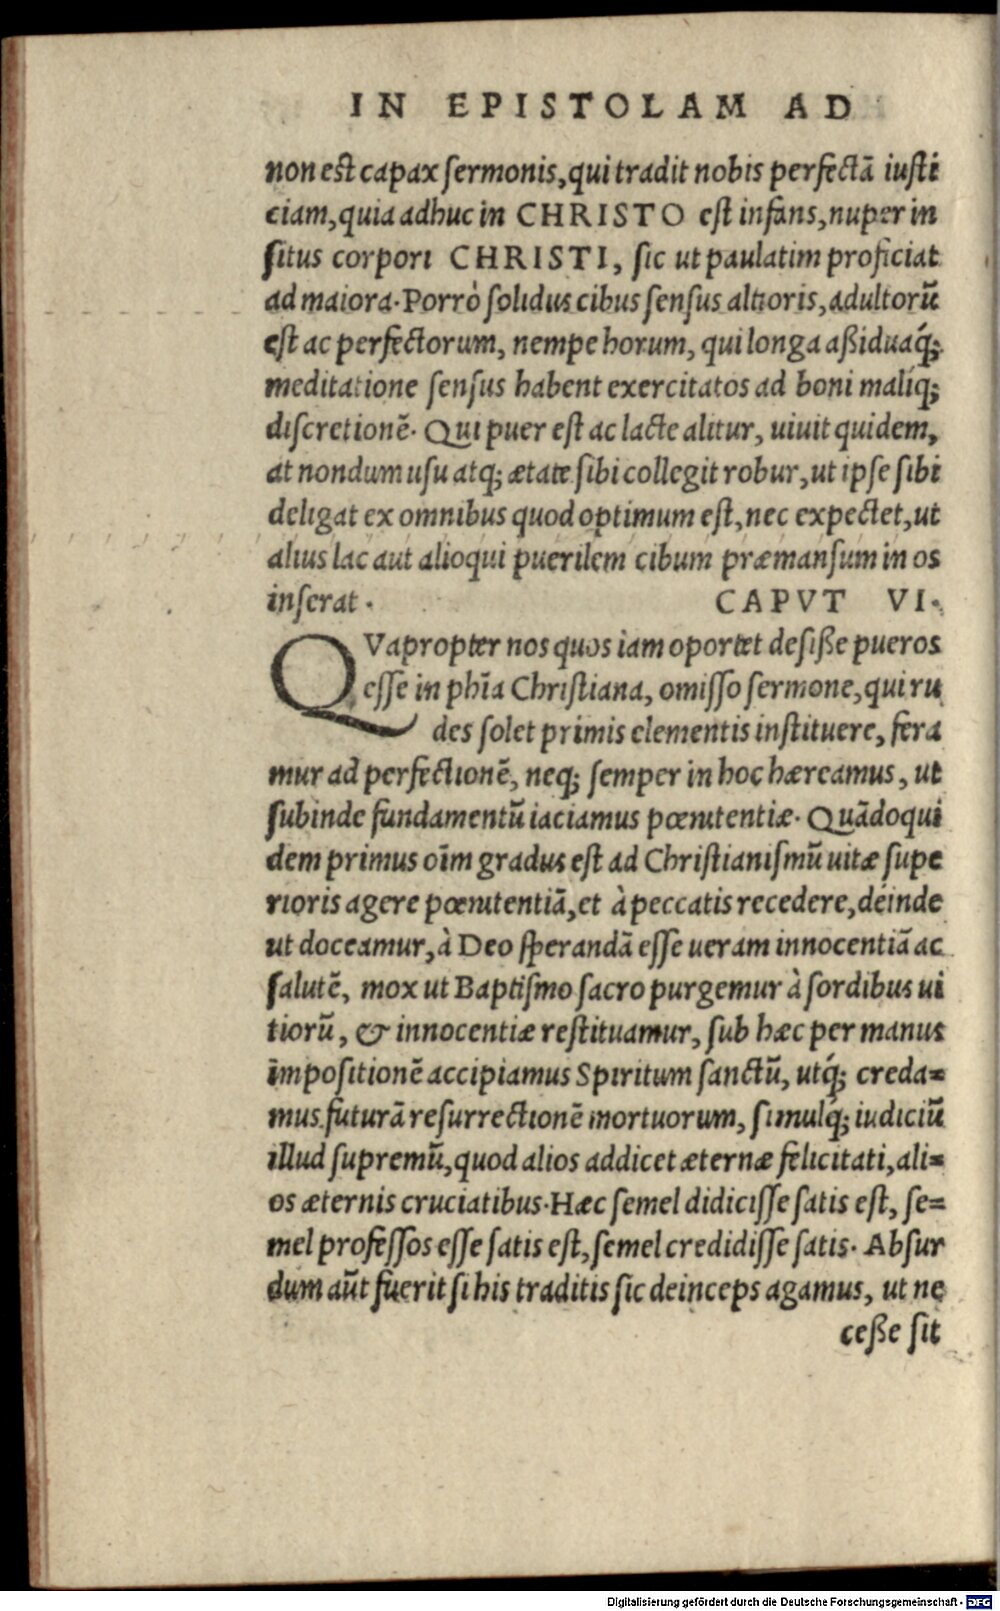 IN EPISTOLAM AD
non est capax sermonis, qui tradit nobis perfectā iusti
ciam, quia adhuc in CHRISTO est infans, nuper in
situs corpori CHRISTI, sic ut paulatim proficiat
ad maiora. Porrò solidus cibus sensus altioris, adultorū
est ac perfectorum, nempe horum, qui longa aßiduaq́;
meditatione sensus habent exercitatos ad boni maliq́;
discretionē. Qui puer est ac lacte alitur, uiuit quidem,
at nondum usu atq; ætate sibi collegit robur, ut ipse sibi
deligat ex omnibus quod optimum est, nec expectet, ut
alius lac aut alioqui puerilem cibum præmansum in os
inserat. CAPVT VI.
QVapropter nos quos iam oportet desiße pueros
esse in phīa Christiana, omisso sermone, qui ru
des solet primis elementis instituere, fera
mur ad perfectionē, neq; semper in hoc hæreamus, ut
subinde fundamentū iaciamus pœnitentiæ. Quādoqui
dem primus oīm gradus est ad Christianismū uitæ supe
rioris agere pœnitentiā, et à peccatis recedere, deinde
ut doceamur, à Deo sperandā esse ueram innocentiā ac
salutē, mox ut Baptismo sacro purgemur à sordibus ui
tiorū, & innocentiæ restituamur, sub hæc per manus
impositionē accipiamus Spiritum sanctū, utq́; creda=
mus futurā resurrectionē mortuorum, simulq́; iudiciū
illud supremū, quod alios addicet æternæ felicitati, ali=
os æternis cruciatibus. Hæc semel didicisse satis est, se=
mel professos esse satis est, semel credidisse satis. Absur
dum aūt fuerit si his traditis sic deinceps agamus, ut ne
ceße sit
Digitalisierung gefördert durch die Deutsche Forschungsgemeinschaft - DFG